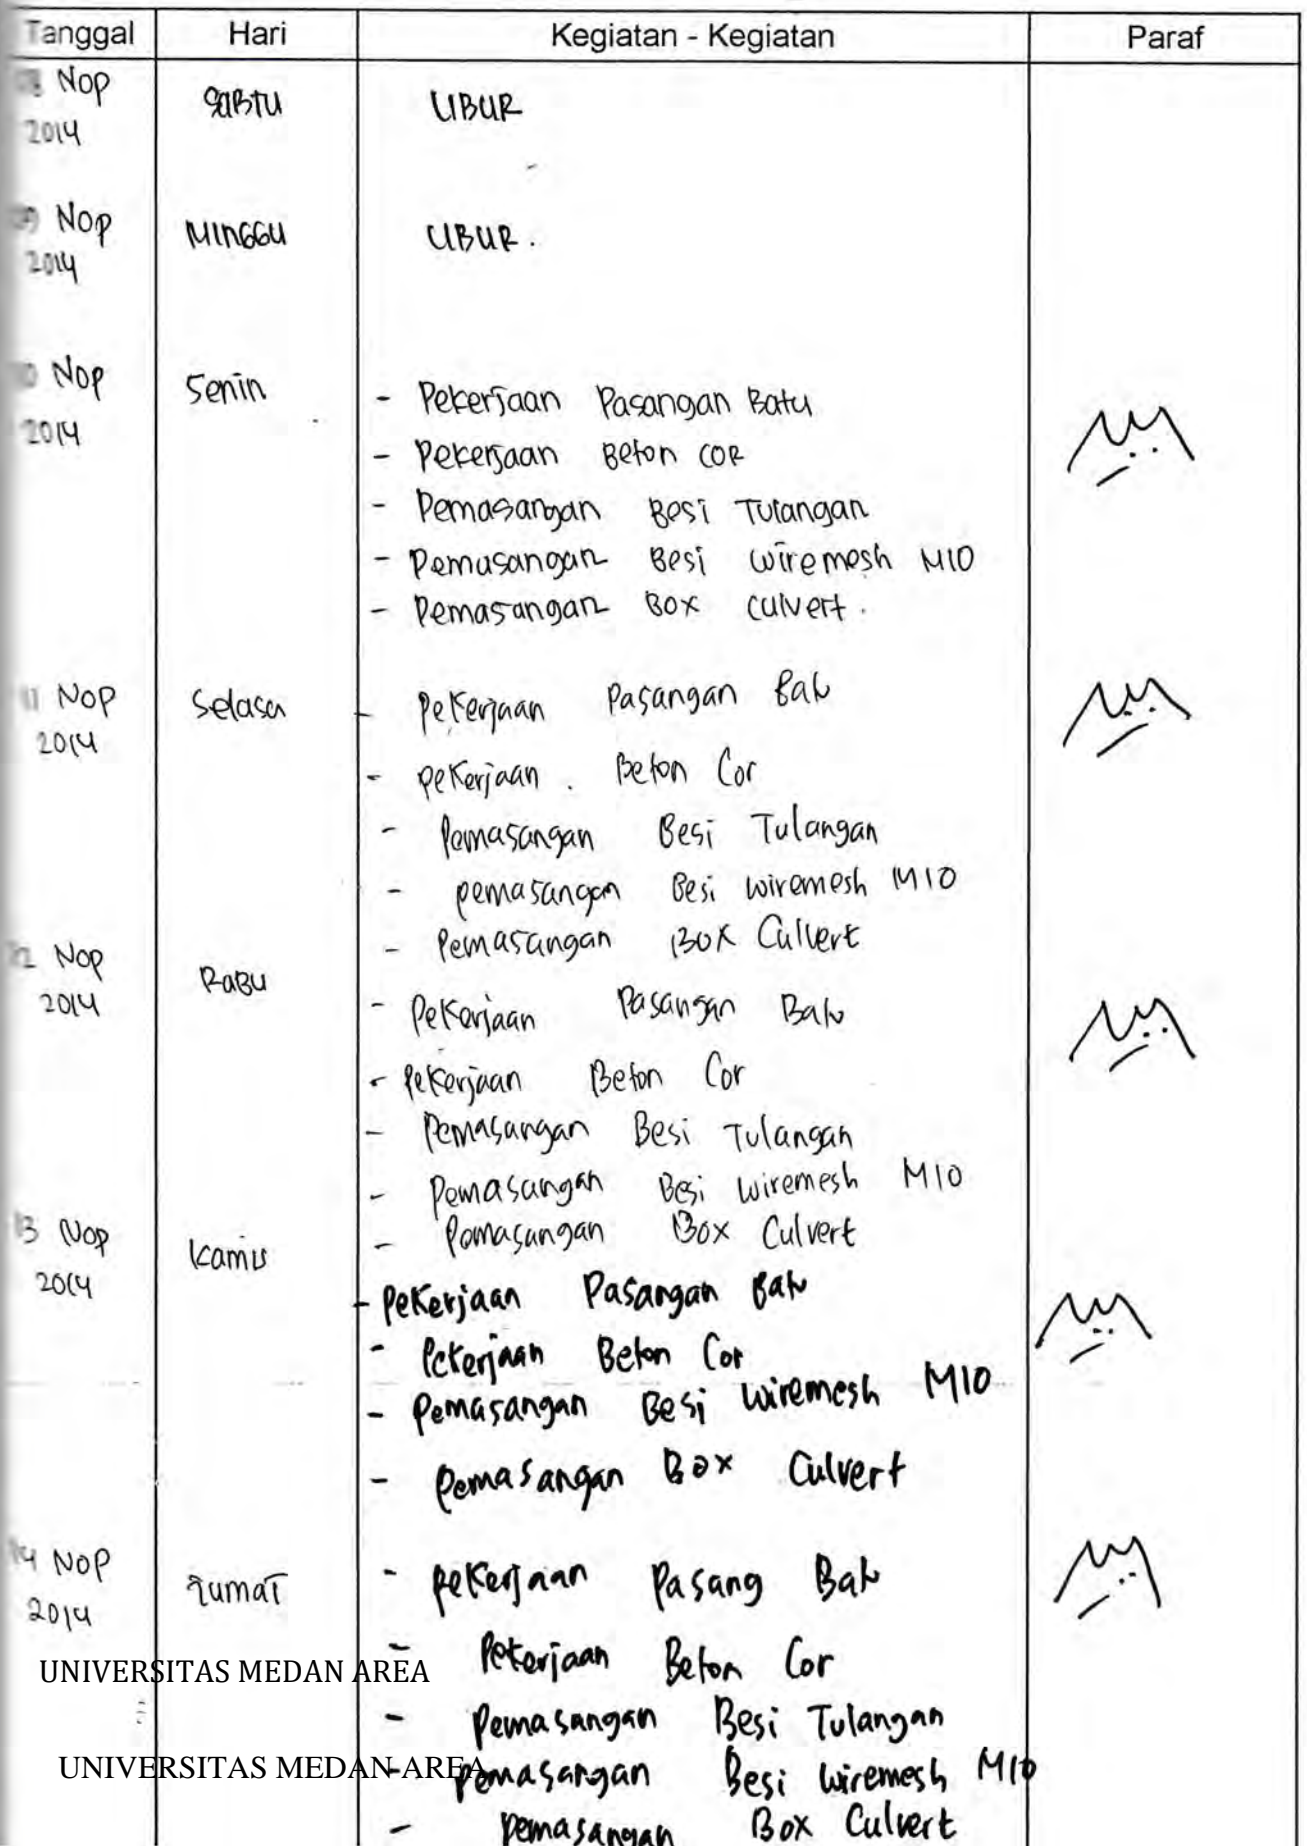 Tanggal Hari Kegiatan - Kegiatan Paraf
Nop SABTU LIBUR
2014
09 Nop MINGGU LIBUR.
2014
10 Nop Senin
2014
- Pekerjaan Pasangan Batu
- Pekerjaan Beton COR
- Pemasangan Besi Tulangan
- Pemasangan Besi wiremesh M10
- Pemasangan BOX culvert.
11 NOP Selasa - Pekerjaan Pasangan Batu
2014
- pekerjaan. Beton Cor
- Pemasangan Besi Tulangan
- pemasangan Besi wiremesh M10
- Pemasangan Box Culvert
12 Nop RABU
2014
- Pekerjaan Pasangan Batu
- Pekerjaan Beton Cor
- Pemasangan Besi Tulangan
- Pemasangan Besi Wiremesh M10
- Pemasangan Box Culvert
13 Nop Kamis
2014
- Pekerjaan Pasangan Batu
- Pekerjaan Beton Cor
- Pemasangan Besi Wiremesh M10
- Pemasangan Box Culvert
14 NOP Jumat - Pekerjaan Pasang Batu
2014
- Pekerjaan Beton Cor
UNIVERSITAS MEDAN AREA
- Pemasangan Besi Tulangan
UNIVERSITAS MEDAN AREA
- Pemasangan Besi Wiremesh M10
- Pemasangan Box Culvert